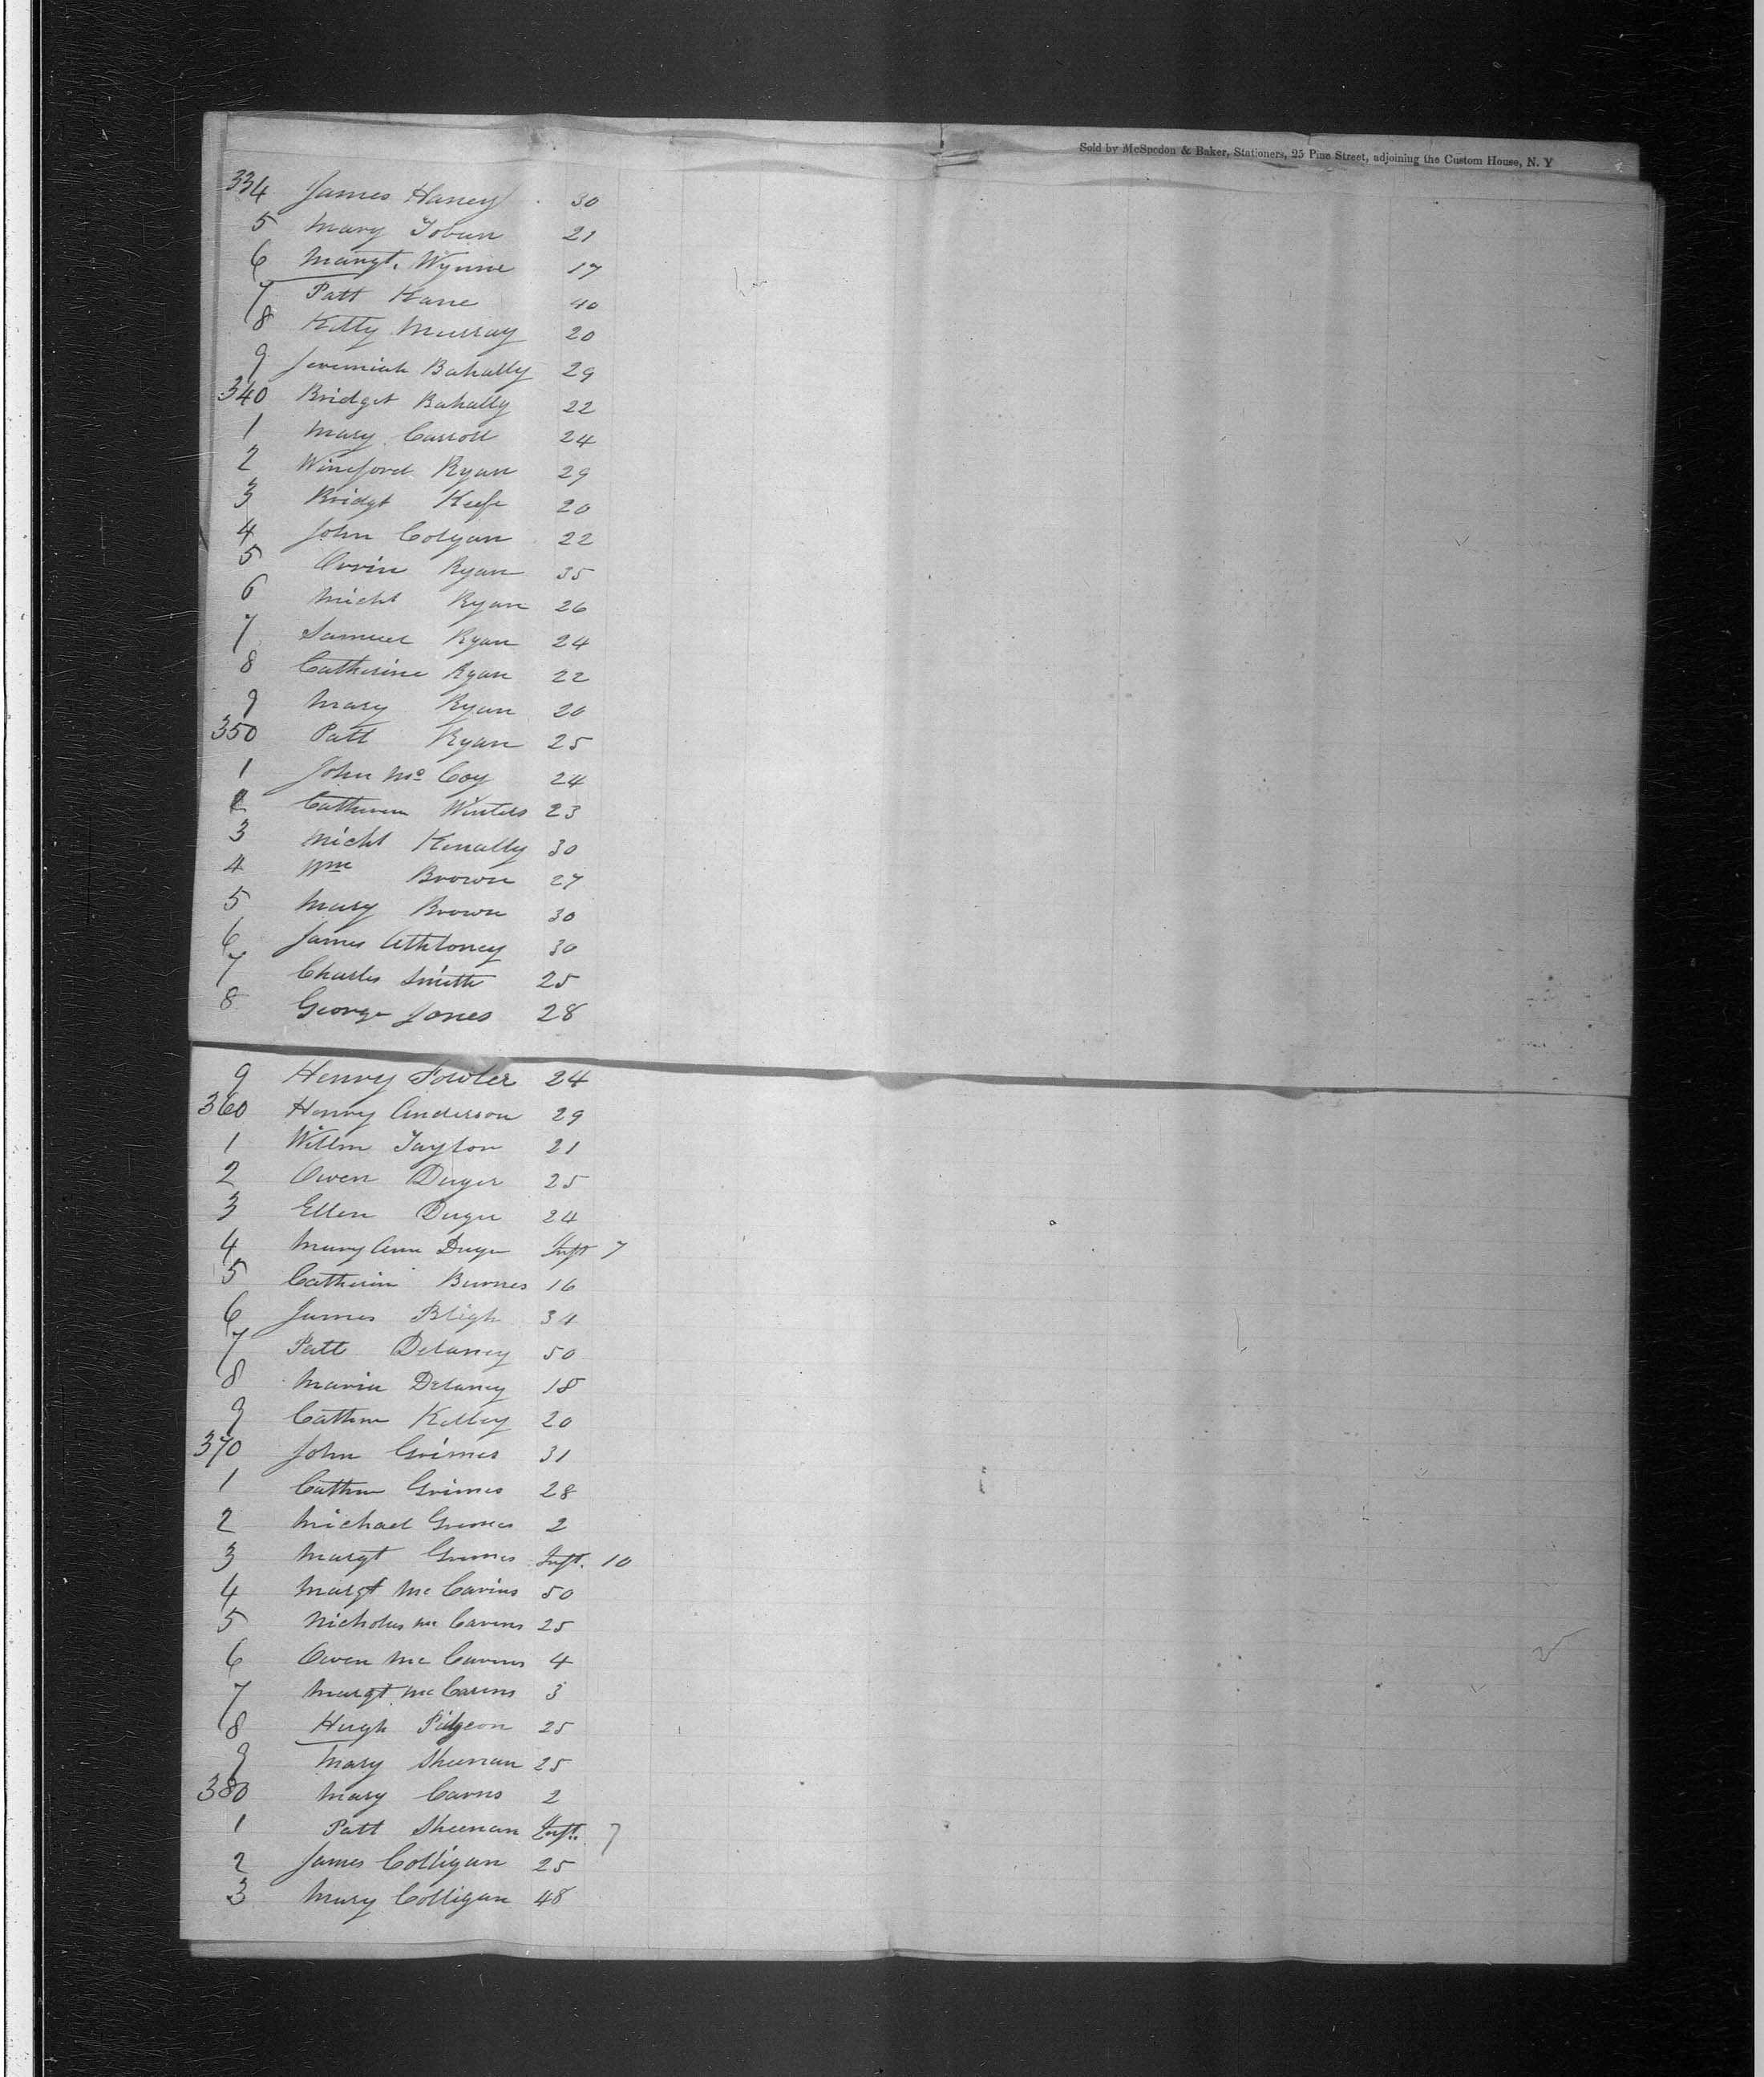 Sold by McSpedon & Baker, Stationers, 25 Pine Street, adjoining the Custom House, N. Y
334 James Haney 30
5 Mary Tobun 21
6 Margt. Wynne 17
7 Patt Kane 40
8 Kitty Murray 20
9 Jeremiah Bahally 29
340 Bridget Bahally 22
1 Mary Carroll 24
2 Winiford Ryan 29
3 Bridgt Keefe 20
4 John Colgan 22
5 Orrin Ryan 35
6 Michl Ryan 26
7 Samuel Ryan 24
8 Catherine Ryan 22
9 Mary Ryan 20
350 Patt Ryan 25
1 John Mc Coy 24
2 Catheren Winters 23
3 Michl Kenally 30
4 Wm Brown 27
5 Mary Brown 30
6 James Athloney 30
7 Charles Smith 25
8 George Jones 28
9 Henry Fowler 24
360 Henry Anderson 29
1 Willm Taylor 21
2 Owen Duger 25
3 Ellen Duger 24
4 Mary Ann Duger Inft 7
5 Catherin Burnes 16
6 James Bligh 34
7 Patt Delaney 50
8 Maria Delaney 18
9 Cathn Kelley 20
370 John Grimes 31
1 Cathn Grimes 28
2 Michael Grimes 2
3 Margt Grimes Inft. 10
4 Margt Mc Cavins 50
5 Nicholas Mc Cavens 25
6 Owen Mc Cavens 4
7 Margt Mc Cavens 3
8 Hugh Pidgeon 25
9 Mary Sheenan 25
380 Mary Carns 2
1 Patt Sheenan Inft. 7
2 James Colligan 25
3 Mary Colligan 48